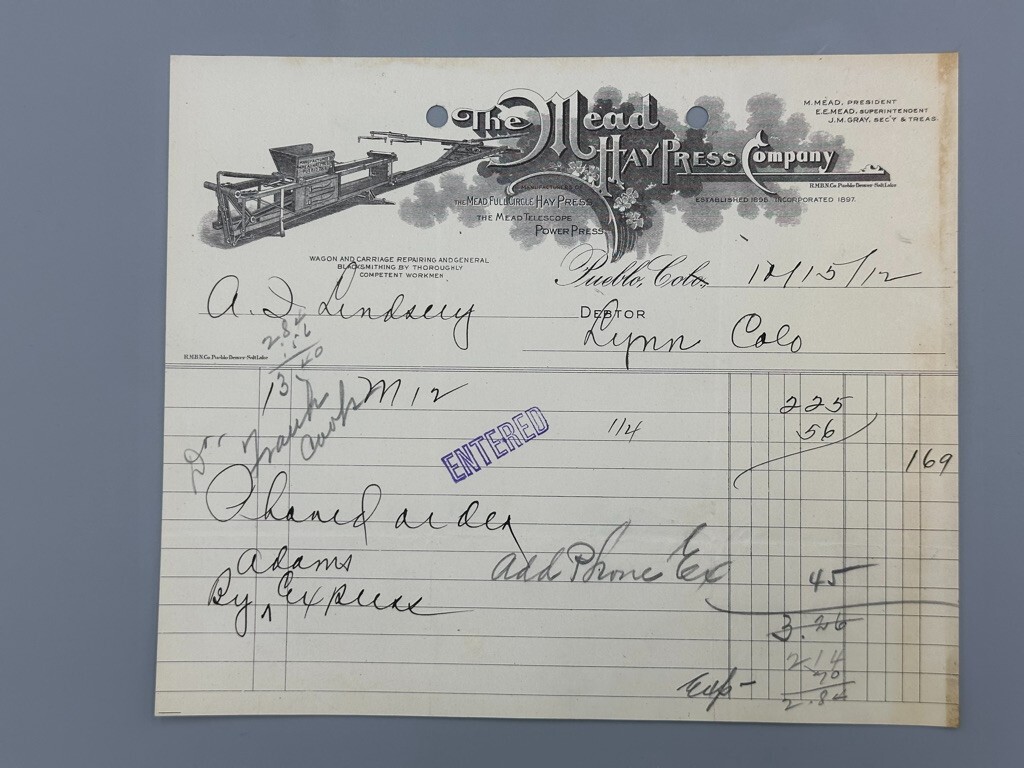 The Mead
Hay Press Company
M. MEAD, PRESIDENT
E.E. MEAD, SUPERINTENDENT
J.M. GRAY, SEC'Y & TREAS.
H.M.B.N.Co. Pueblo-Denver-SaltLake
MANUFACTURERS OF
THE MEAD FULL CIRCLE HAY PRESS
THE MEAD TELESCOPE
POWER PRESS
ESTABLISHED 1896 INCORPORATED 1897.
WAGON AND CARRIAGE REPAIRING AND GENERAL
BLACKSMITHING BY THOROUGHLY
COMPETENT WORKMEN
Pueblo, Colo. 10/15/12
A. I. Lindsey DEBTOR
Lynn Colo
2.84
.56
3 40
H.M.B.N.Co. Pueblo-Denver-SaltLake
1 M 12 225
Dr Frank
Coop
ENTERED
1/4 56
169
Phoned order
add Phone Ex 45
Adams
By ^ Express
3.26
214
70
Exp - 2.84